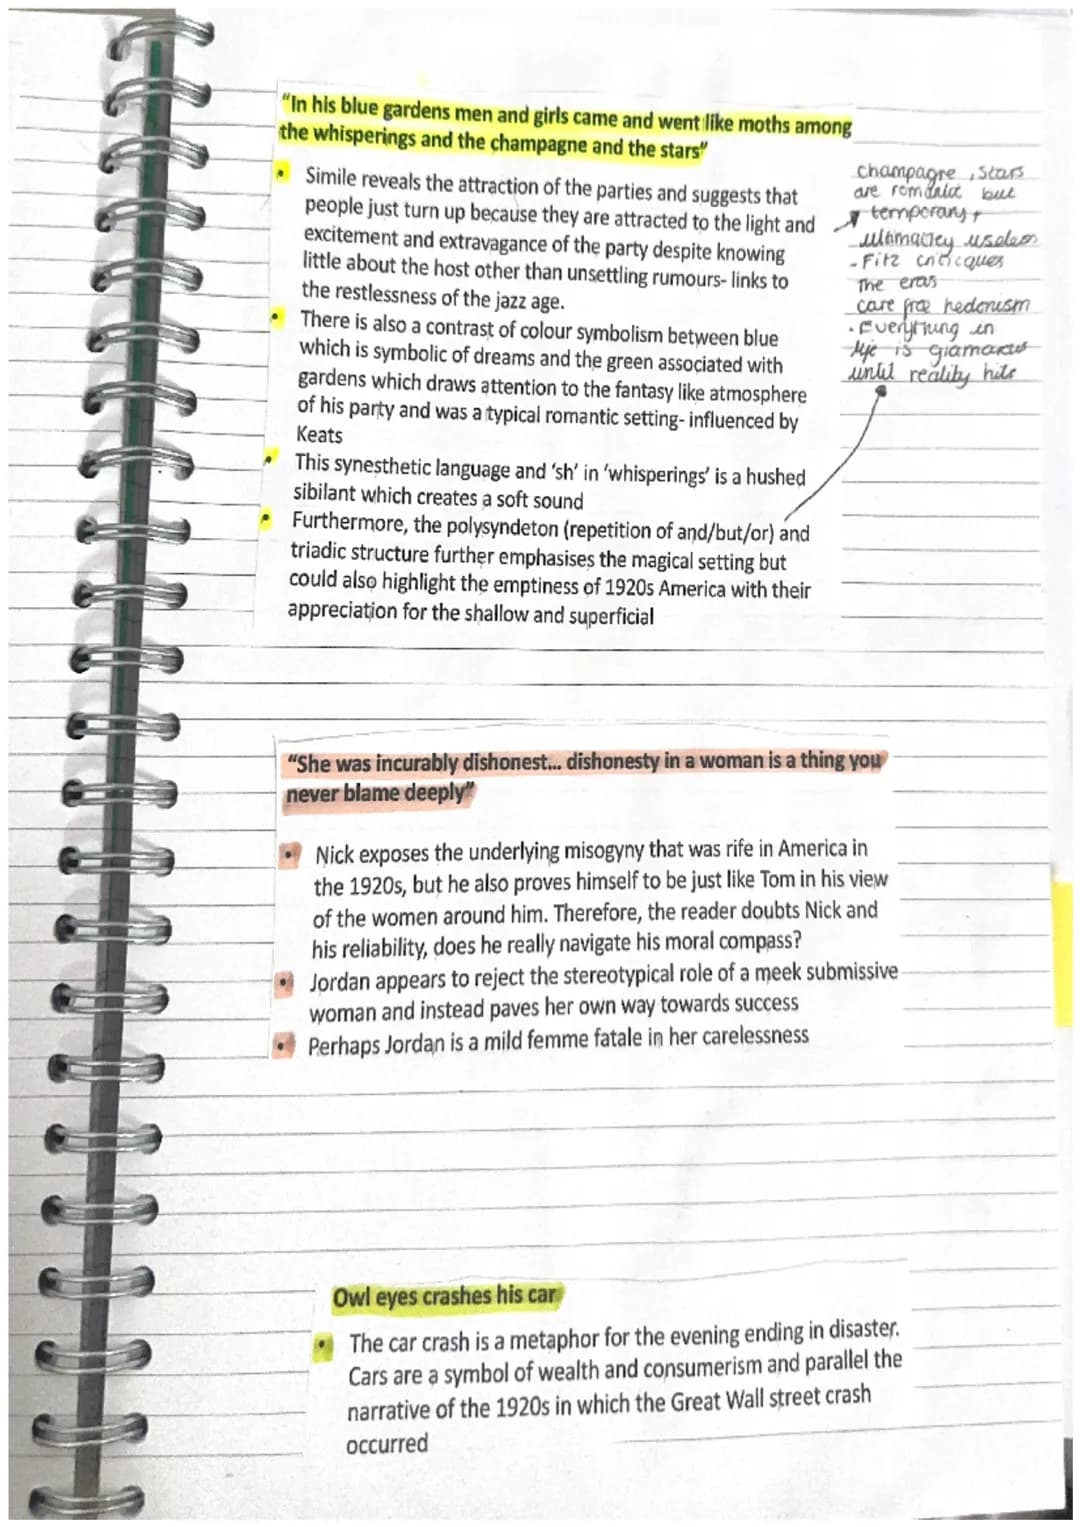 "In his blue gardens men and girls came and went like moths among
the whisperings and the champagne and the stars"
• Simile reveals the attraction of the parties and suggests that
people just turn up because they are attracted to the light and
excitement and extravagance of the party despite knowing
little about the host other than unsettling rumours- links to
the restlessness of the jazz age.
• There is also a contrast of colour symbolism between blue
which is symbolic of dreams and the green associated with
gardens which draws attention to the fantasy like atmosphere
of his party and was a typical romantic setting- influenced by
Keats
• This synesthetic language and 'sh' in 'whisperings' is a hushed
sibilant which creates a soft sound
• Furthermore, the polysyndeton (repetition of and/but/or) and
triadic structure further emphasises the magical setting but
could also highlight the emptiness of 1920s America with their
appreciation for the shallow and superficial
champagne, stars
are romantic but
temporary +
ultimately useless
- Fitz critiques
the eras
care free hedonism
• Everything in
life is glamorous
until reality hits
"She was incurably dishonest... dishonesty in a woman is a thing you
never blame deeply"
• Nick exposes the underlying misogyny that was rife in America in
the 1920s, but he also proves himself to be just like Tom in his view
of the women around him. Therefore, the reader doubts Nick and
his reliability, does he really navigate his moral compass?
• Jordan appears to reject the stereotypical role of a meek submissive
woman and instead paves her own way towards success
• Perhaps Jordan is a mild femme fatale in her carelessness
Owl eyes crashes his car
• The car crash is a metaphor for the evening ending in disaster.
Cars are a symbol of wealth and consumerism and parallel the
narrative of the 1920s in which the Great Wall street crash
occurred